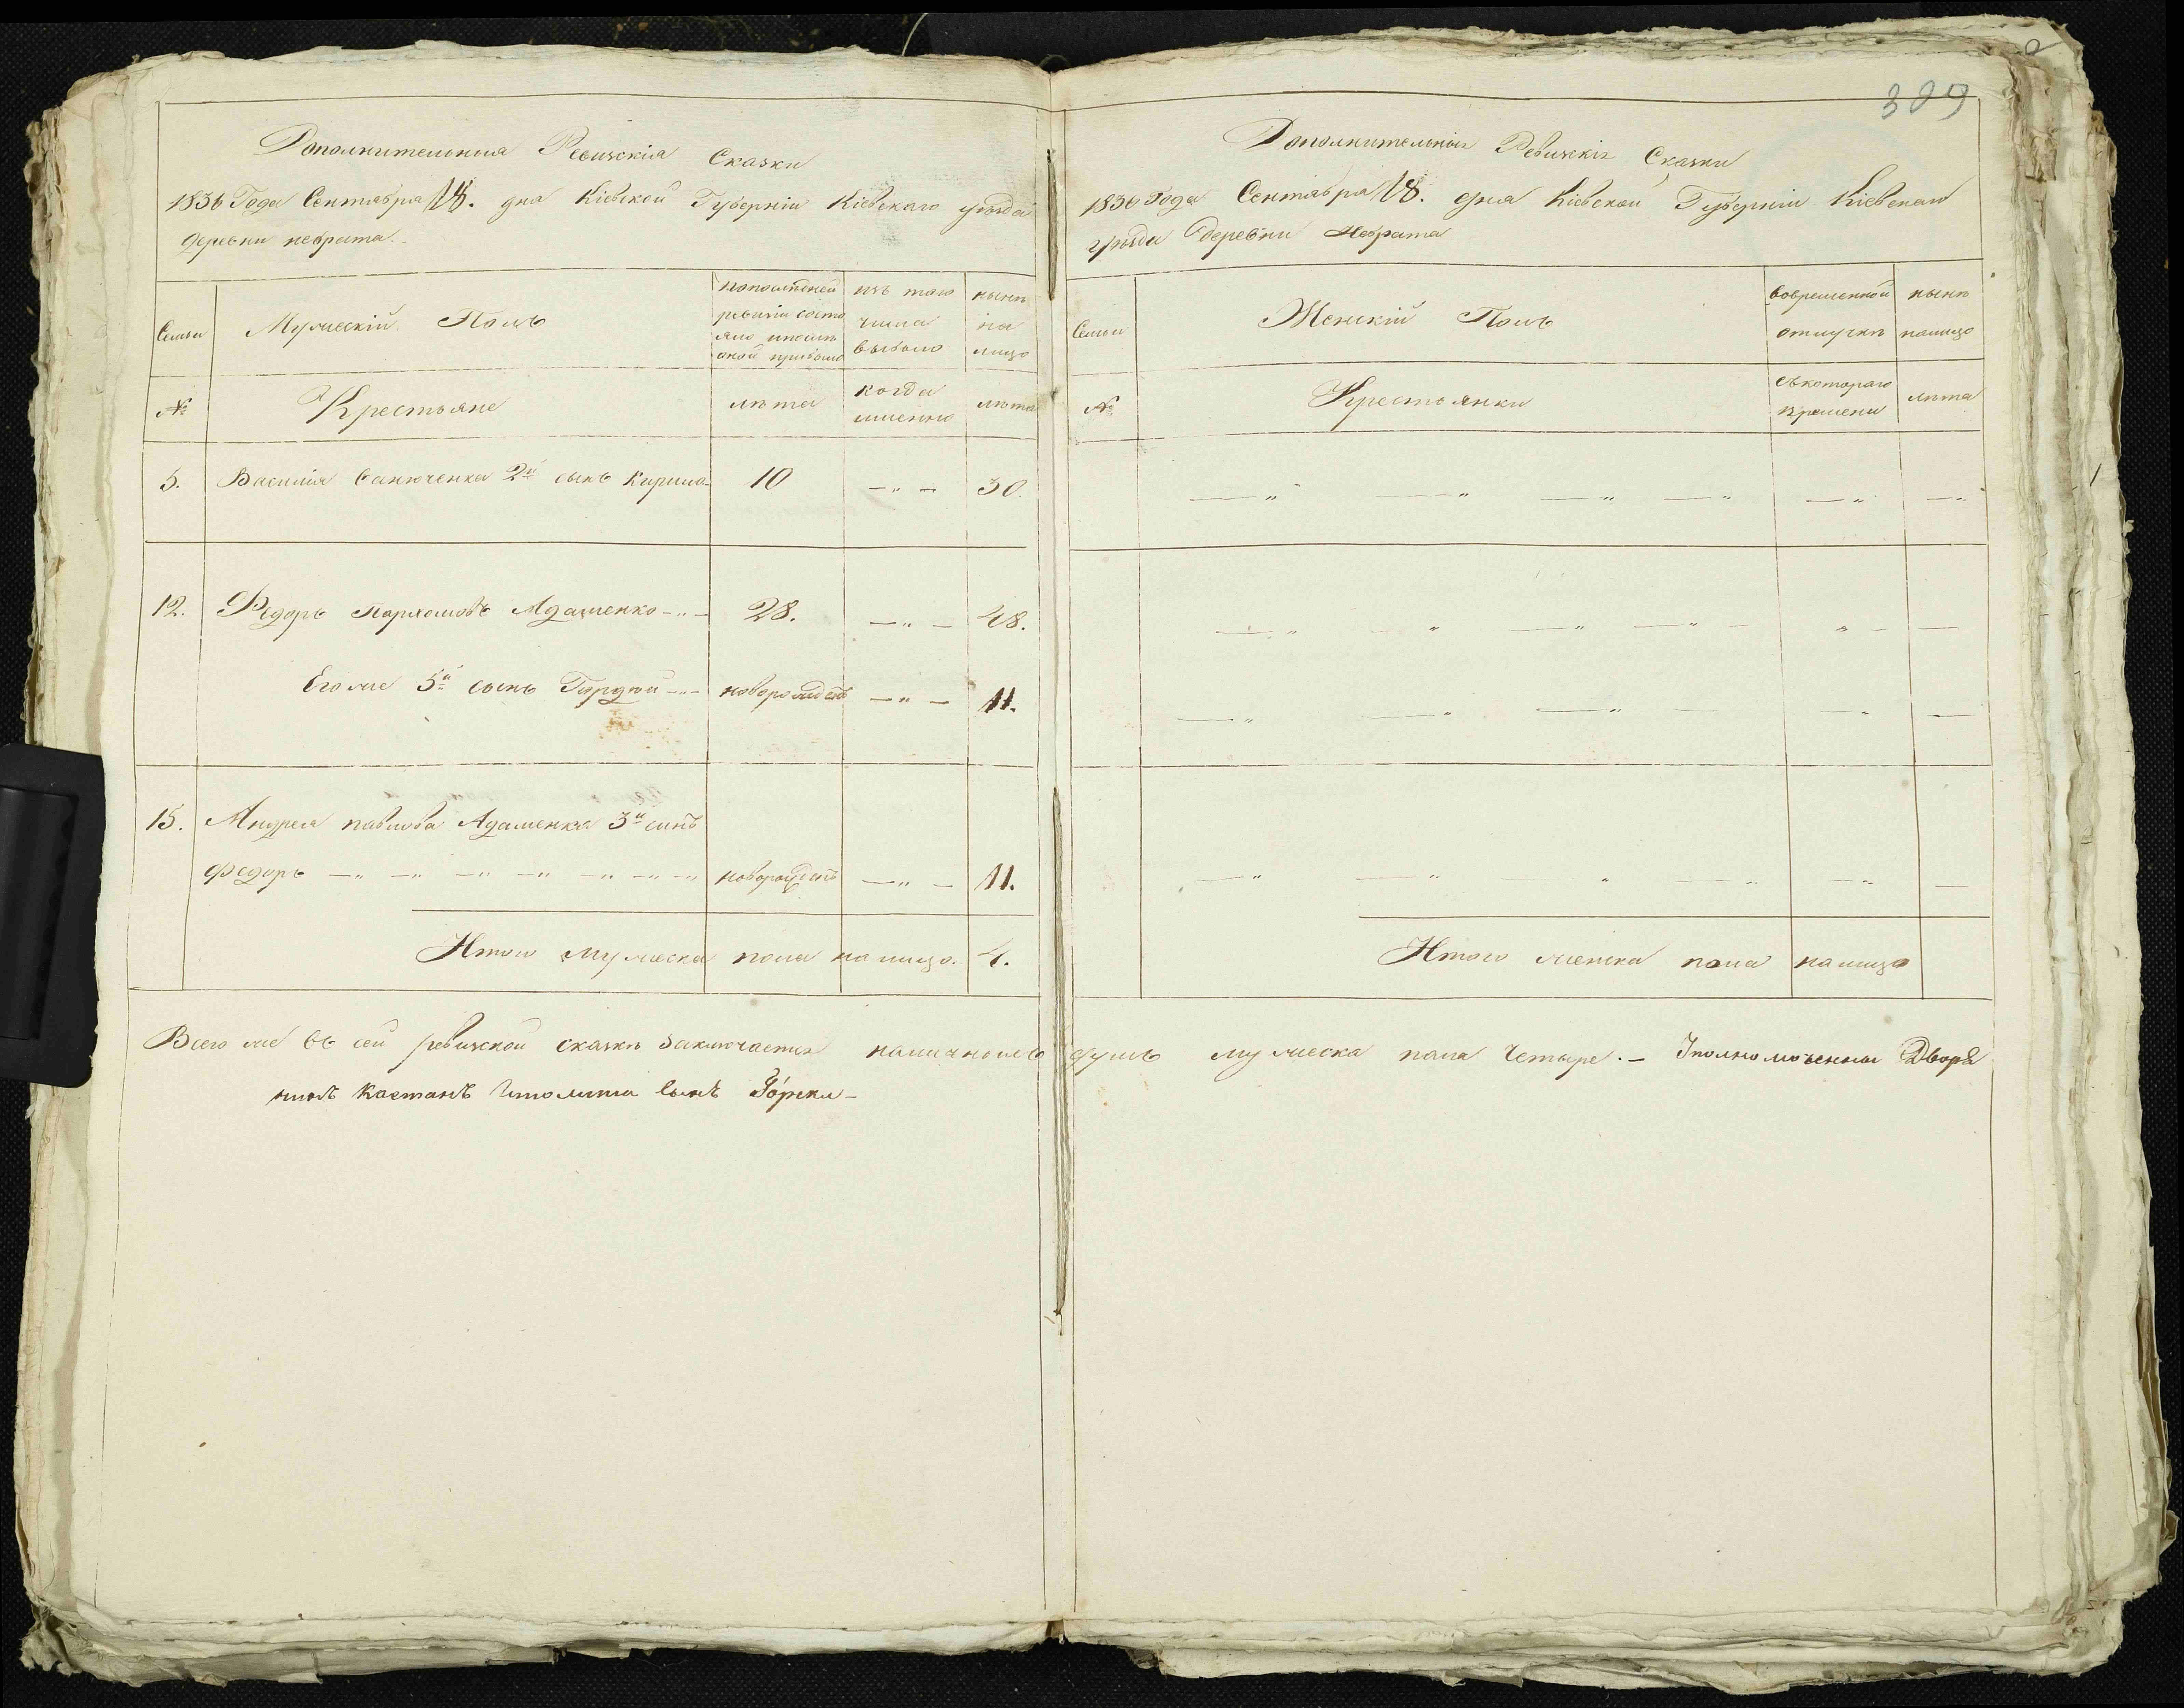 Дополнительныя Ревижскія Сказки
1836 Года Сентября 18. дня Кіевской Губерніи Кіевскаго уезда
деревни невраша
Семьи
Мужескій Полъ
по последней ревизіи состояло и после оной прибыло
изъ того числа выбыло
ныне на лицо
№
Крестьяне
лета
когда именно
лета
5. Василія Ванюченка 2й сынъ Кирило 10 —„— 30.
12. Федоръ Пархомовъ Адаменко —„— 28. —„— 48.
Его же 5й сынъ Гордей —„— новорожденъ —„— 11.
15. Андрея павлова Адаменка 3й синъ
Федоръ —„ —„ —„ —„ —„ —„ —„ новорожденъ —„— 11.
Итого мужеска пола на лицо. 4.
309
Дополнительныя Ревижскія Сказки
1836 Года Сентября 18. дня Кіевской Губерніи Кіевскаго
уезда деревни Невраша
Семьи
Женскій Полъ
во временной отлучке
ныне налицо
№
Крестьянки
съ котораго времени
лета
Итого женска пола налицо
Всего же въ сей ревижской сказке заключается наличныхъ душъ мужеска пола четыре. — Уполномоченный Дворя
нинъ Каетанъ Иполита сынъ Горски —